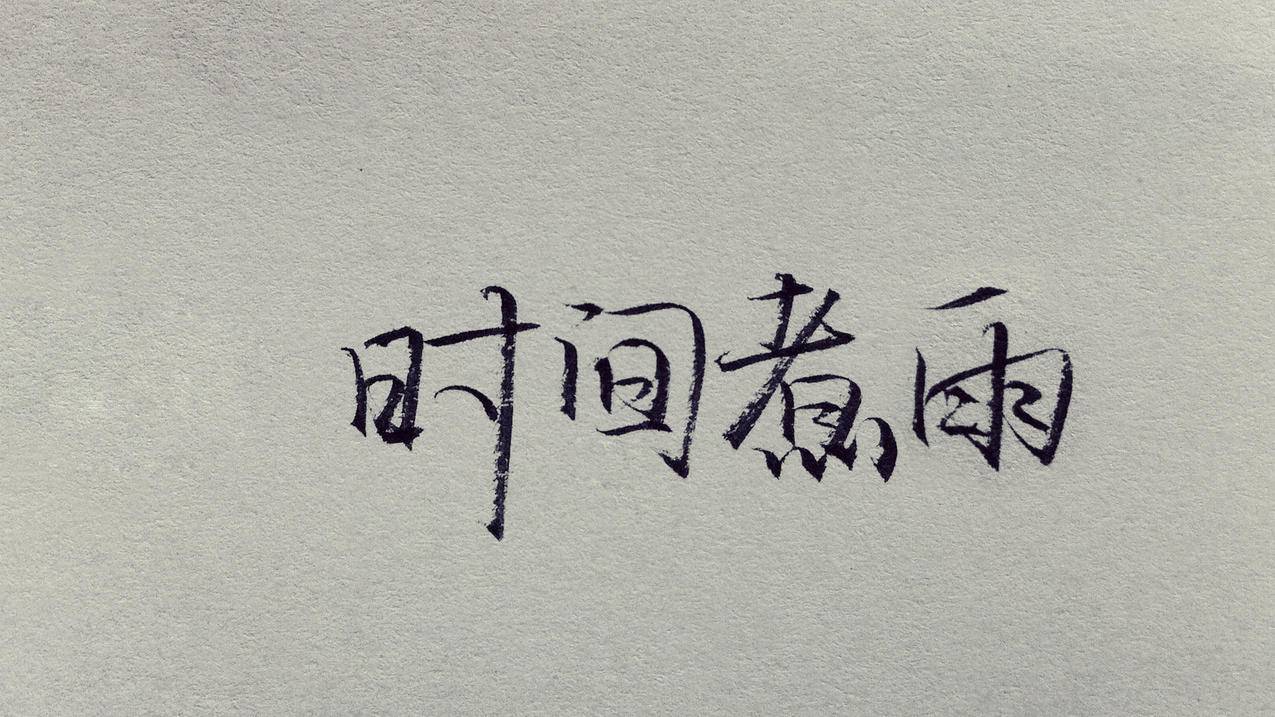 时间煮雨